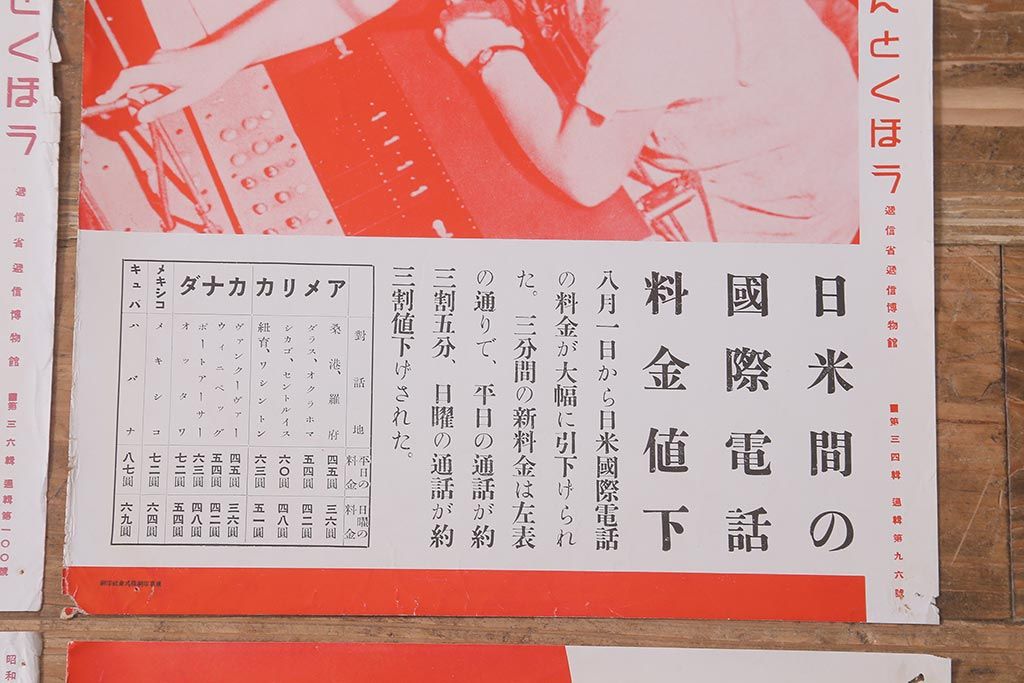 んとくほラ
遞信省遞信博物館
第三四輯 通輯第九六號
日米間の
國際電話
料金値下
八月一日から日米國際電話
の料金が大幅に引下けられ
た。三分間の新料金は左表
の通りで、平日の通話が約
三割五分、日曜の通話が約
三割値下けされた。
對話地 平日の料金 日曜の料金
アメリカ 桑港、羅府 四五圓 三六圓
ダラス、オクラホマ 五四圓 四二圓
シカゴ、セントルイス 六〇圓 四八圓
紐育、ワシントン 六三圓 五一圓
カナダ ヴァンクーヴァー 四五圓 三六圓
ウィニペッグ 五四圓 四二圓
ポートアーサー 六三圓 四八圓
オッタワ 七二圓 五四圓
メキシコ メキシコ 七二圓 六四圓
キューバ ハバナ 八七圓 六九圓
とくほラ
遞信省遞信博物館
第三六輯 通輯第一〇〇號
昭和